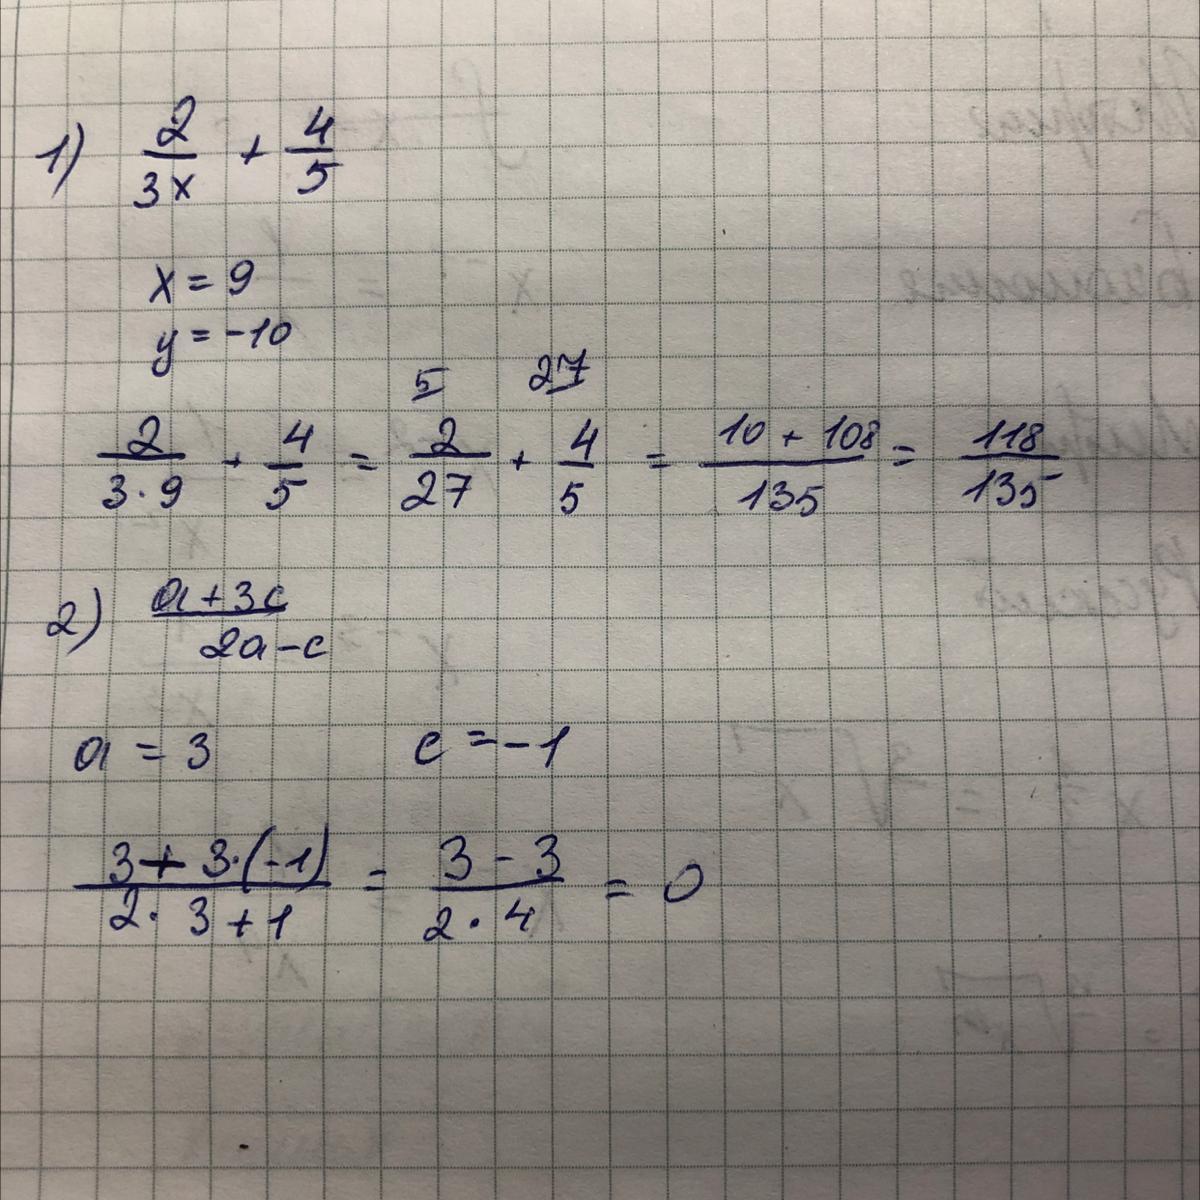 1) 2/3x + 4/5
x = 9
y = -10
5 27
2/(3·9) + 4/5 = 2/27 + 4/5 = (10 + 108)/135 = 118/135
2) (a+3c)/(2a-c)
a = 3 c = -1
(3 + 3·(-1))/(2· 3 + 1) = (3 - 3)/(2 · 4) = 0